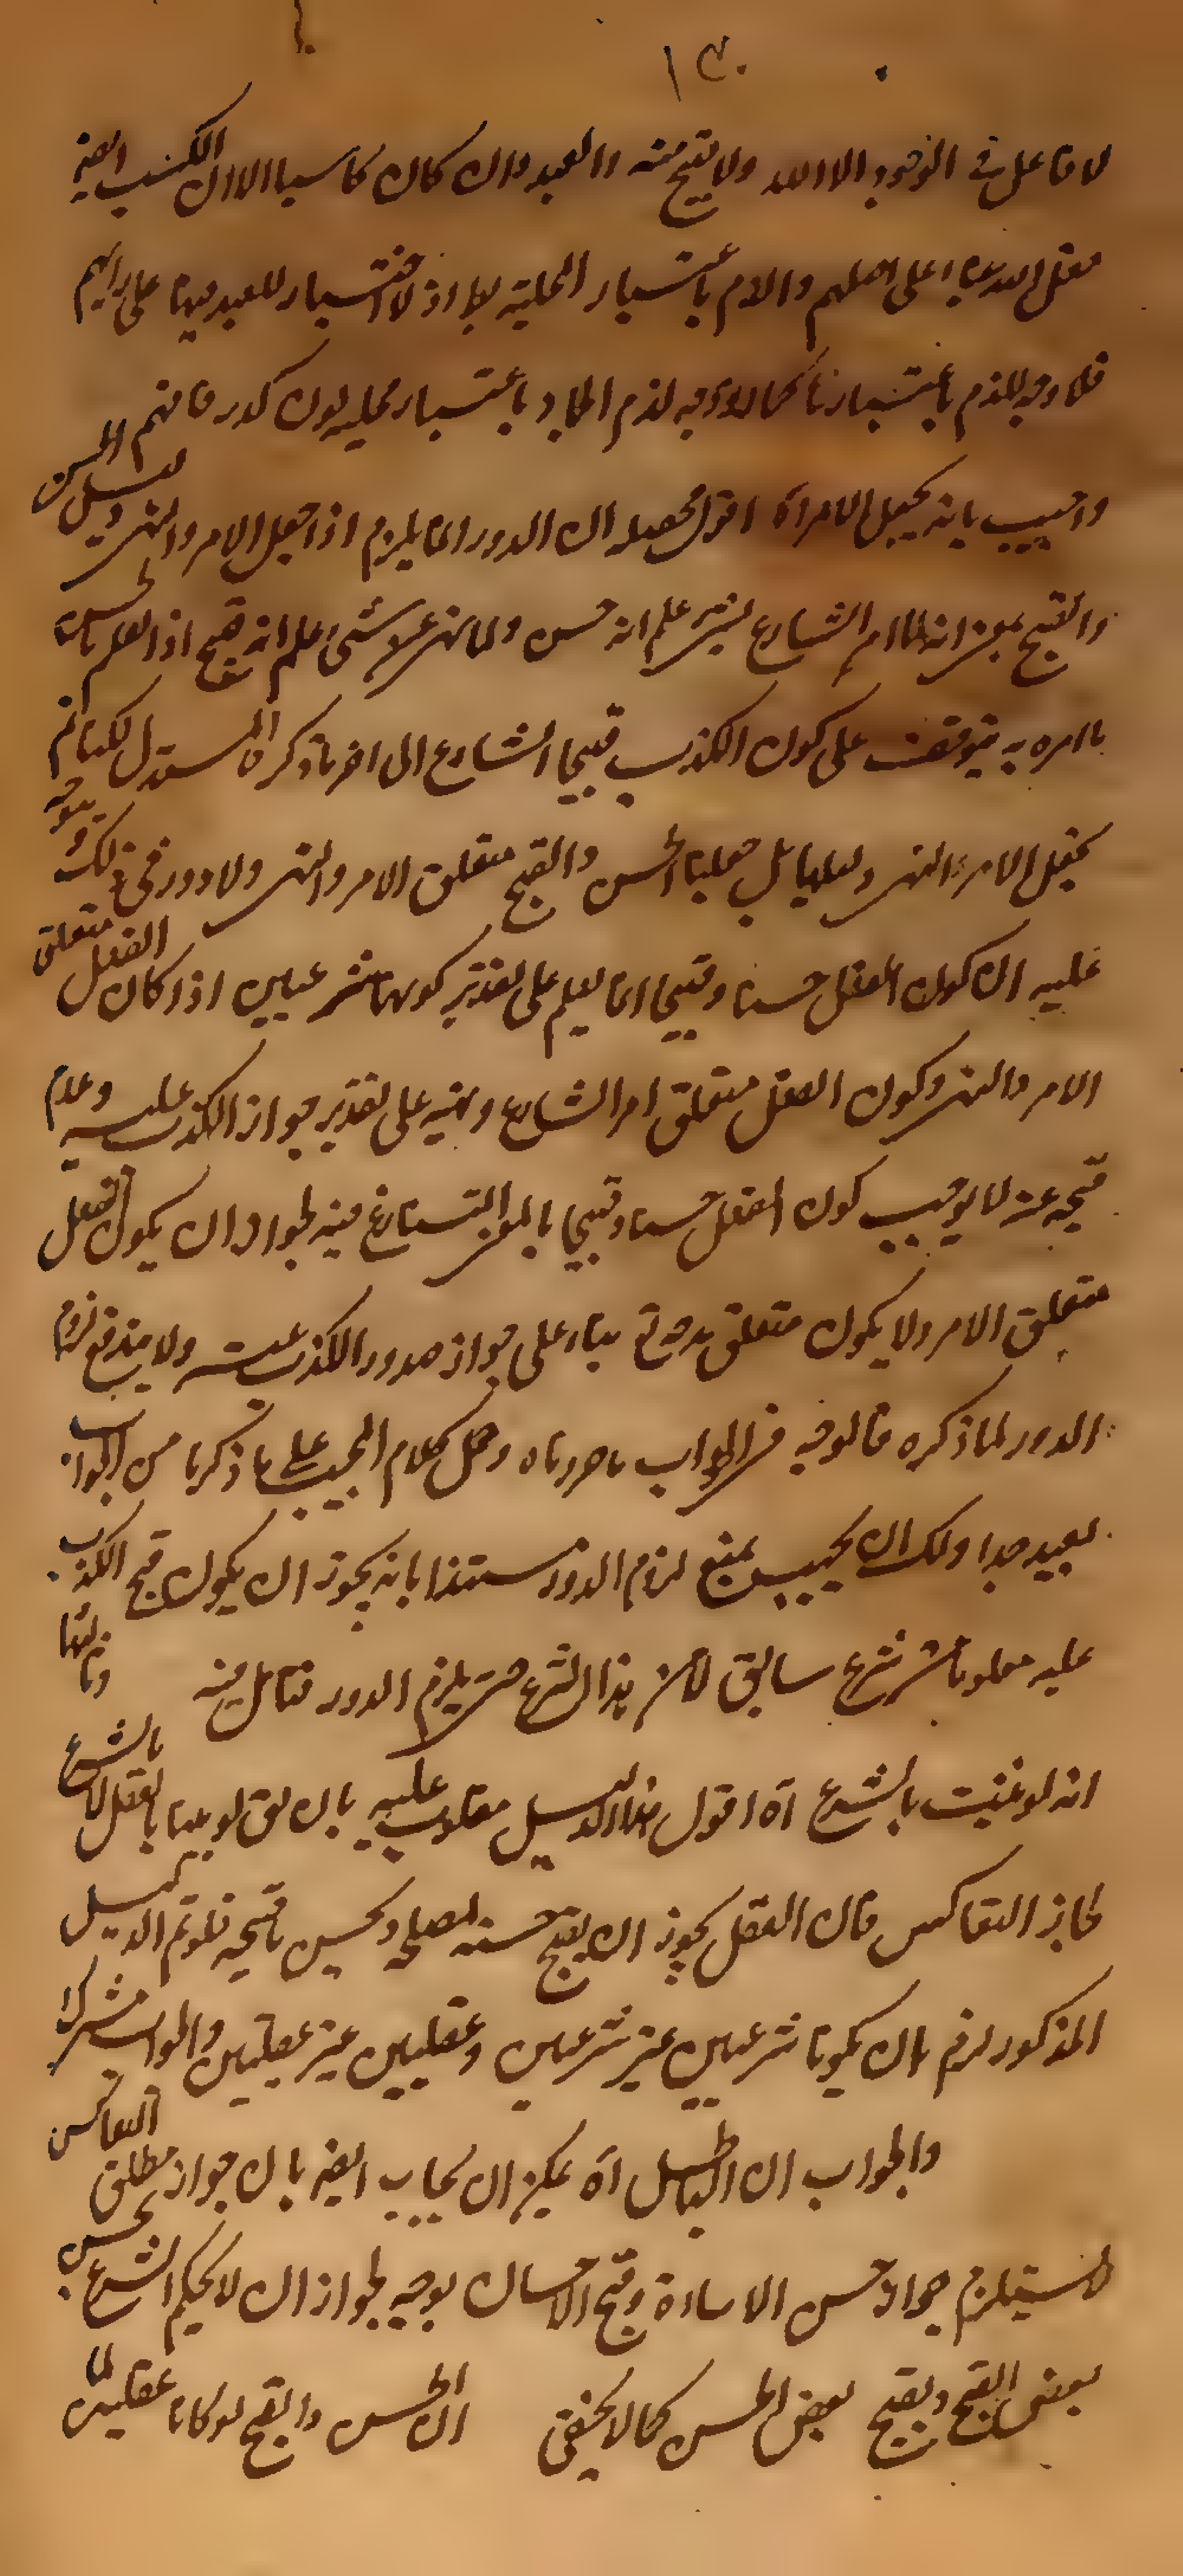 ١٣٠
لا فاعل فى الوجود الا الله ولا يقبح منه والعبد وان كان كاسبا الا ان الكسب ايضا
فعل الله على اصلهم والذم باعتبار المحلية اذ لا اختيار للعبد فيها على رايهم
فلا وجه للذم باعتبارنا كما لا وجه لذم الجماد باعتبار محليته للون كدر فافهم
واجيب بانه يجعل الامر اه اقول محصله ان الدور انما يلزم اذا جعل الامر والنهى دليل الحسن
والقبح بمعنى انه لما امر الشارع بشىء علم انه حسن ولما نهى عن شىء علم انه قبيح اذ العلم بالحسن
بامره به يتوقف على كون الكذب قبيحا الشارع الى اخر ما ذكره المستدل لكنا لم
نجعل الامر والنهى دليلهما بل جعلنا الحسن والقبح متعلق الامر والنهى ولا دور فى ذلك ويتوجه
عليه ان كون الفعل حسنا وقبيحا انما يعلم على تقدير كونهما شرعيين اذا كان الفعل متعلق
الامر والنهى وكون الفعل متعلق امر الشارع ونهيه على تقدير جواز الكذب عليه وعدم
قبحه عنه لا يوجب كون الفعل حسنا وقبيحا بالمعنى المتنازع فيه لجواز ان يكون الفعل
متعلق الامر ولا يكون متعلق مدحه تع بناء على جواز صدور الكذب عنه ولا يندفع لزوم
الدور لما ذكره فالوجه فى الجواب ما حررناه وحمل كلام المجيب على ما ذكرنا من الجواب
بعيد جدا ولك ان تجيب بمنع لزوم الدور مستندا بانه يجوز ان يكون قبح الكذب
عليه معلوما من شرع سابق لا من هذا الشرع حتى يلزم الدور فتامل فيه وثالثها
انه لو ثبت بالشرع اه اقول هذا الدليل مقلوب عليه بان يق لو ثبتا بالعقل لا بالشرع
لجاز التعاكس فان العقل يجوز ان يقبح حسنه لمصلحة ويحسن ما قبحه فلو تم الدليل
المذكور لزم ان يكونا شرعيين غير شرعيين وعقليين غير عقليين والجواب مشترك
والجواب ان الباطل اه يمكن ان يجاب ايضا بان جواز مطلق التعاكس
لا يستلزم جواز حسن الاساءة وقبح الاحسان بوجه لجواز ان لا يحكم الشرع بحسن
بعض القبح ويقبح بعض الحسن كما لا يخفى ان الحسن والقبح لو كانا عقليين لما